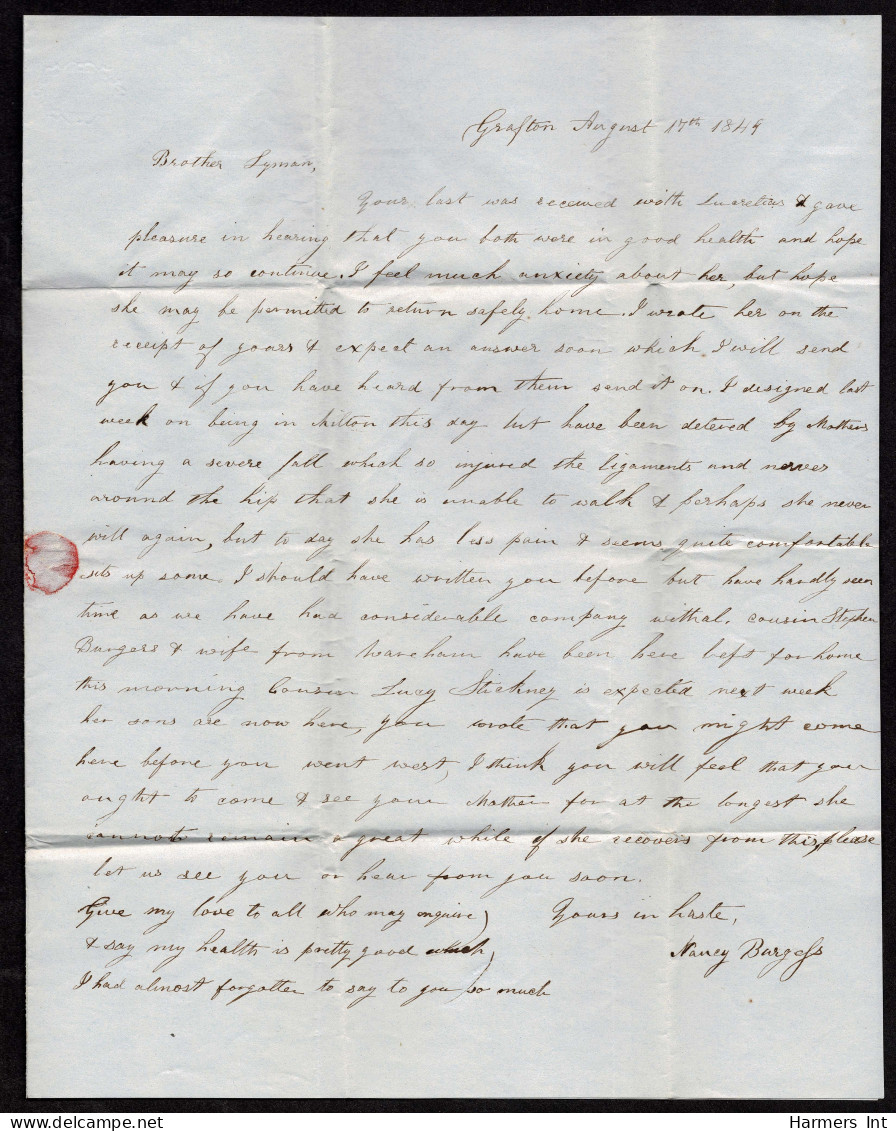 Grafton August 17th 1849
Brother Lyman,
Yours last was received with Lucretias & gave
pleasure in hearing that you both were in good health and hope
it may so continue. I feel much anxiety about her, but hope
she may be permitted to return safely home. I wrote her on the
receipt of yours & expect an answer soon which I will send
you & if you have heard from them send it on. I designed last
week on being in Milton this day but have been detered by Mothers
having a severe fall which so injured the ligaments and nerves
around the hip that she is unable to walk & perhaps she never
will again, but to day she has less pain & seems quite comfortable
sits up some. I should have written you before but have hardly seen
time as we have had considerable company withal. cousin Stephen
Burgess & wife from Wareham have been here left for home
this morning Cousin Lucy Stickney is expected next week
her sons are now here, you wrote that you might come
here before you went west, I think you will feel that you
ought to come & see your Mother for at the longest she
cannot remain a great while if she recovers from this, please
let us see you or hear from you soon.
Give my love to all who may enquire) Yours in haste,
& say my health is pretty good which) Nancy Burgess
I had almost forgotten to say to you so much
Harmers Int